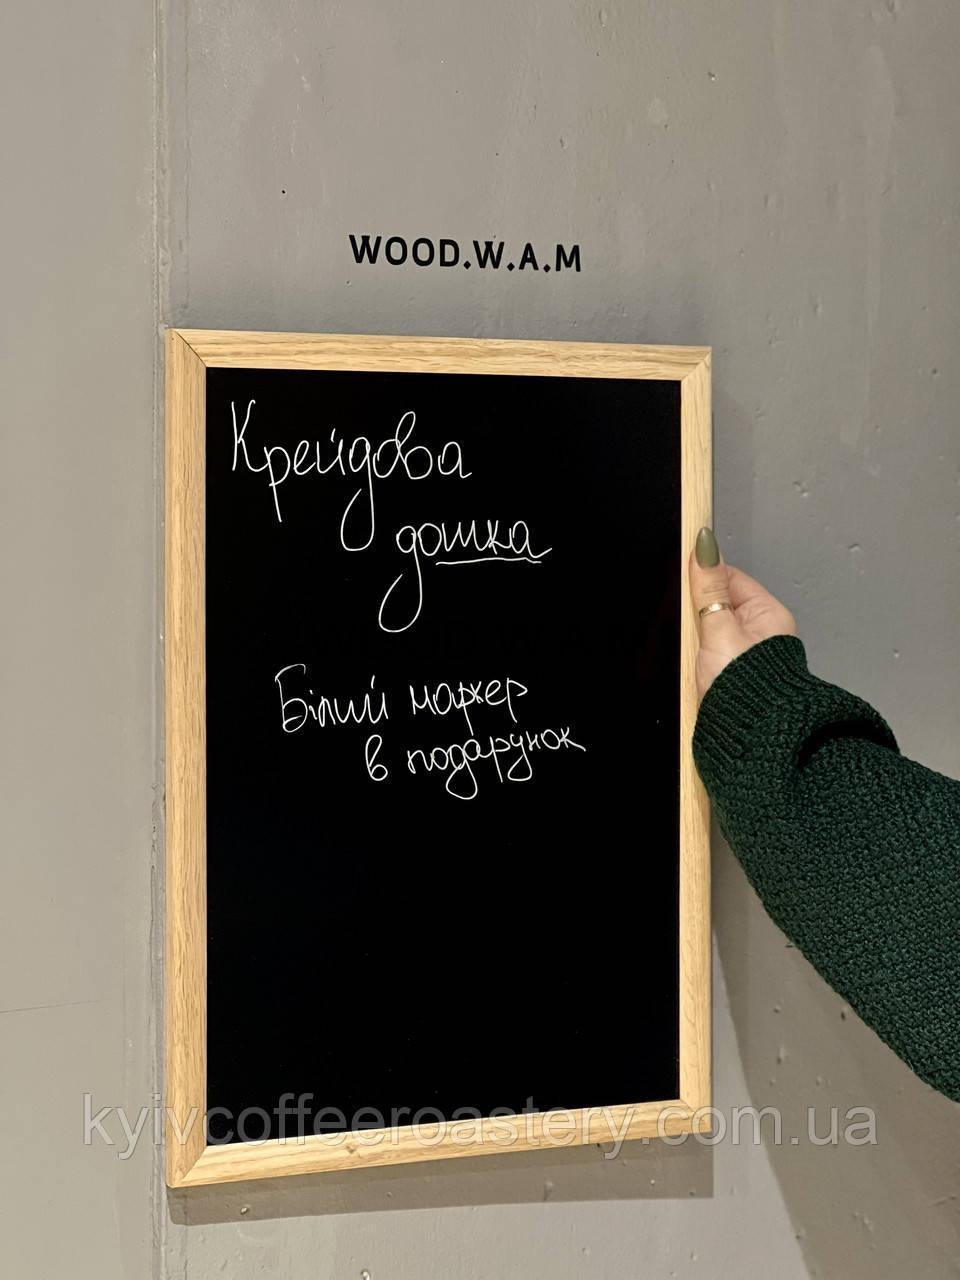 WOOD.W.A.M
Крейдова
дошка
Білий маркер
в подарунок
kyivcoffeeroastery.com.ua